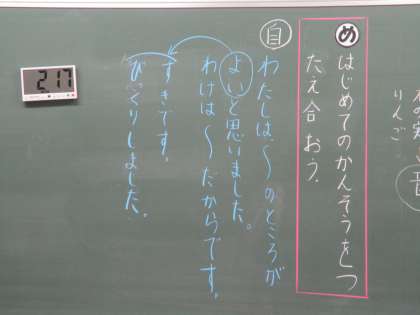 め
はじめてのかんそうをつ
たえ合おう.
自
わたしは、〜のところが
よいと思いました。
わけは〜だからです。
すきです。
びっくりしました。
りんご
2 17